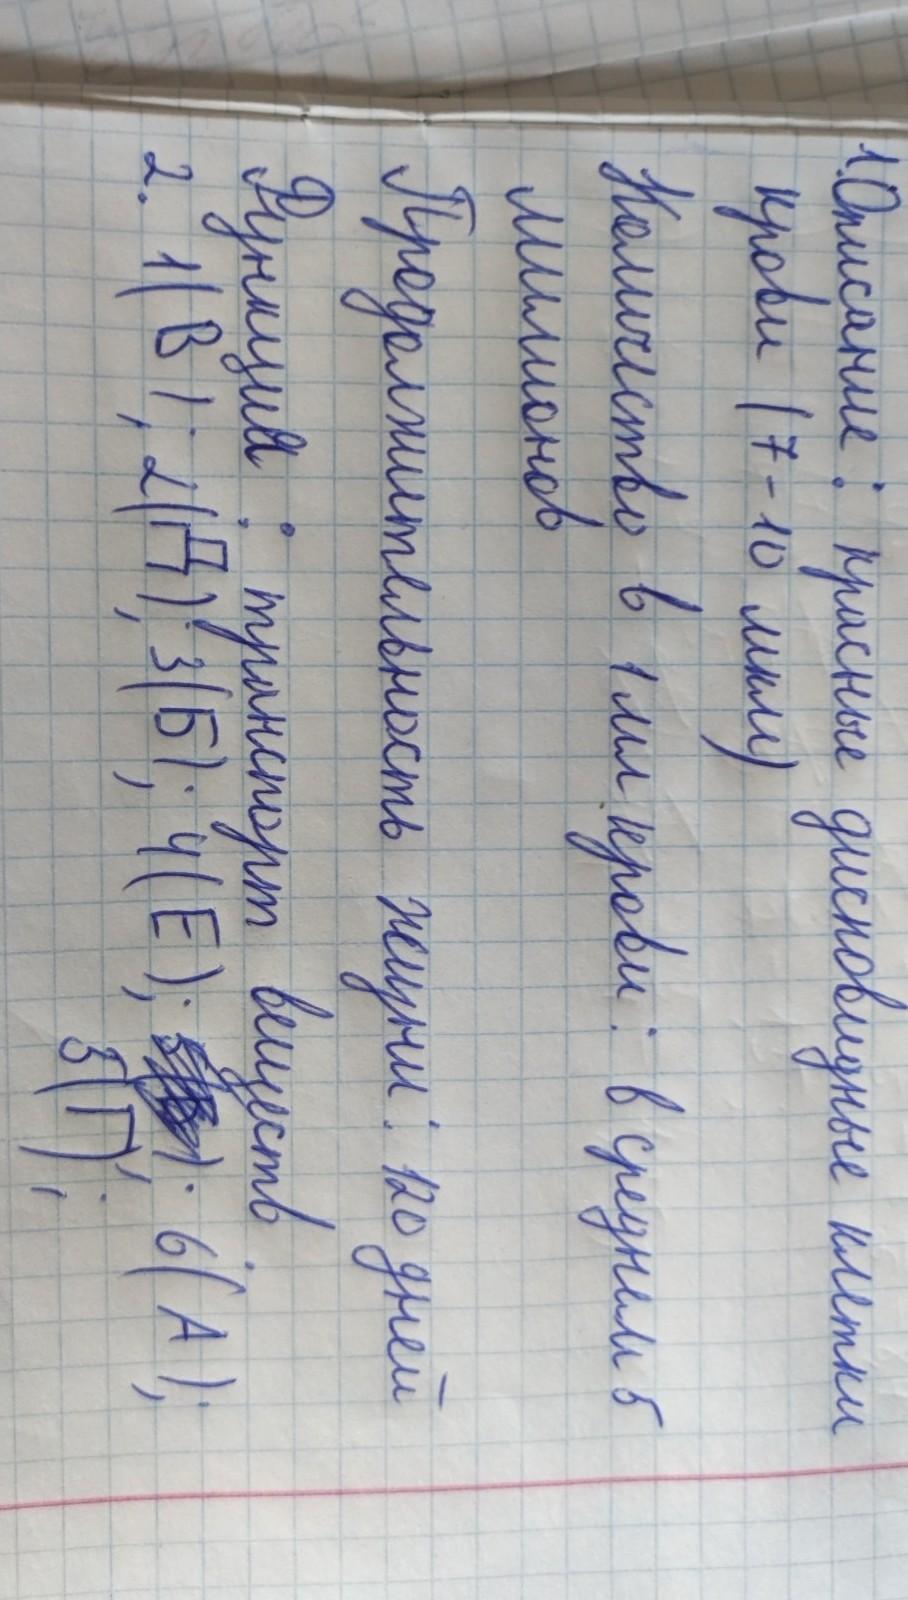 1. Описание: красные дисковидные клетки
крови (7-10 мкм)
Количество в 1 мл крови: в среднем 5
миллионов
Продолжительность жизни: 120 дней
Функции: транспорт веществ
2. 1(В); 2(Д); 3(Б); 4(Е); 6(А);
5(Г);